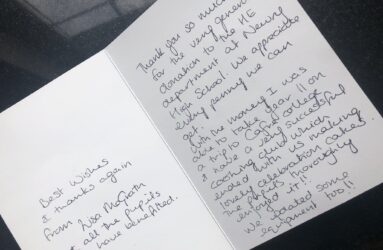 Best Wishes
& thanks again
From Lisa McGrath
& all the Pupils
have benefitted.
Thank you so much
for the very generous
donation to the HE
department at Newry
High School. We appreciate
every penny we can
get.
With the money I was
able to take year 11 on
a trip to college
& have a very successful
cooking club which
ended with us making
lovely celebration cakes.
The Pupils thoroughly
enjoyed it!!
We located some
equipment too!!